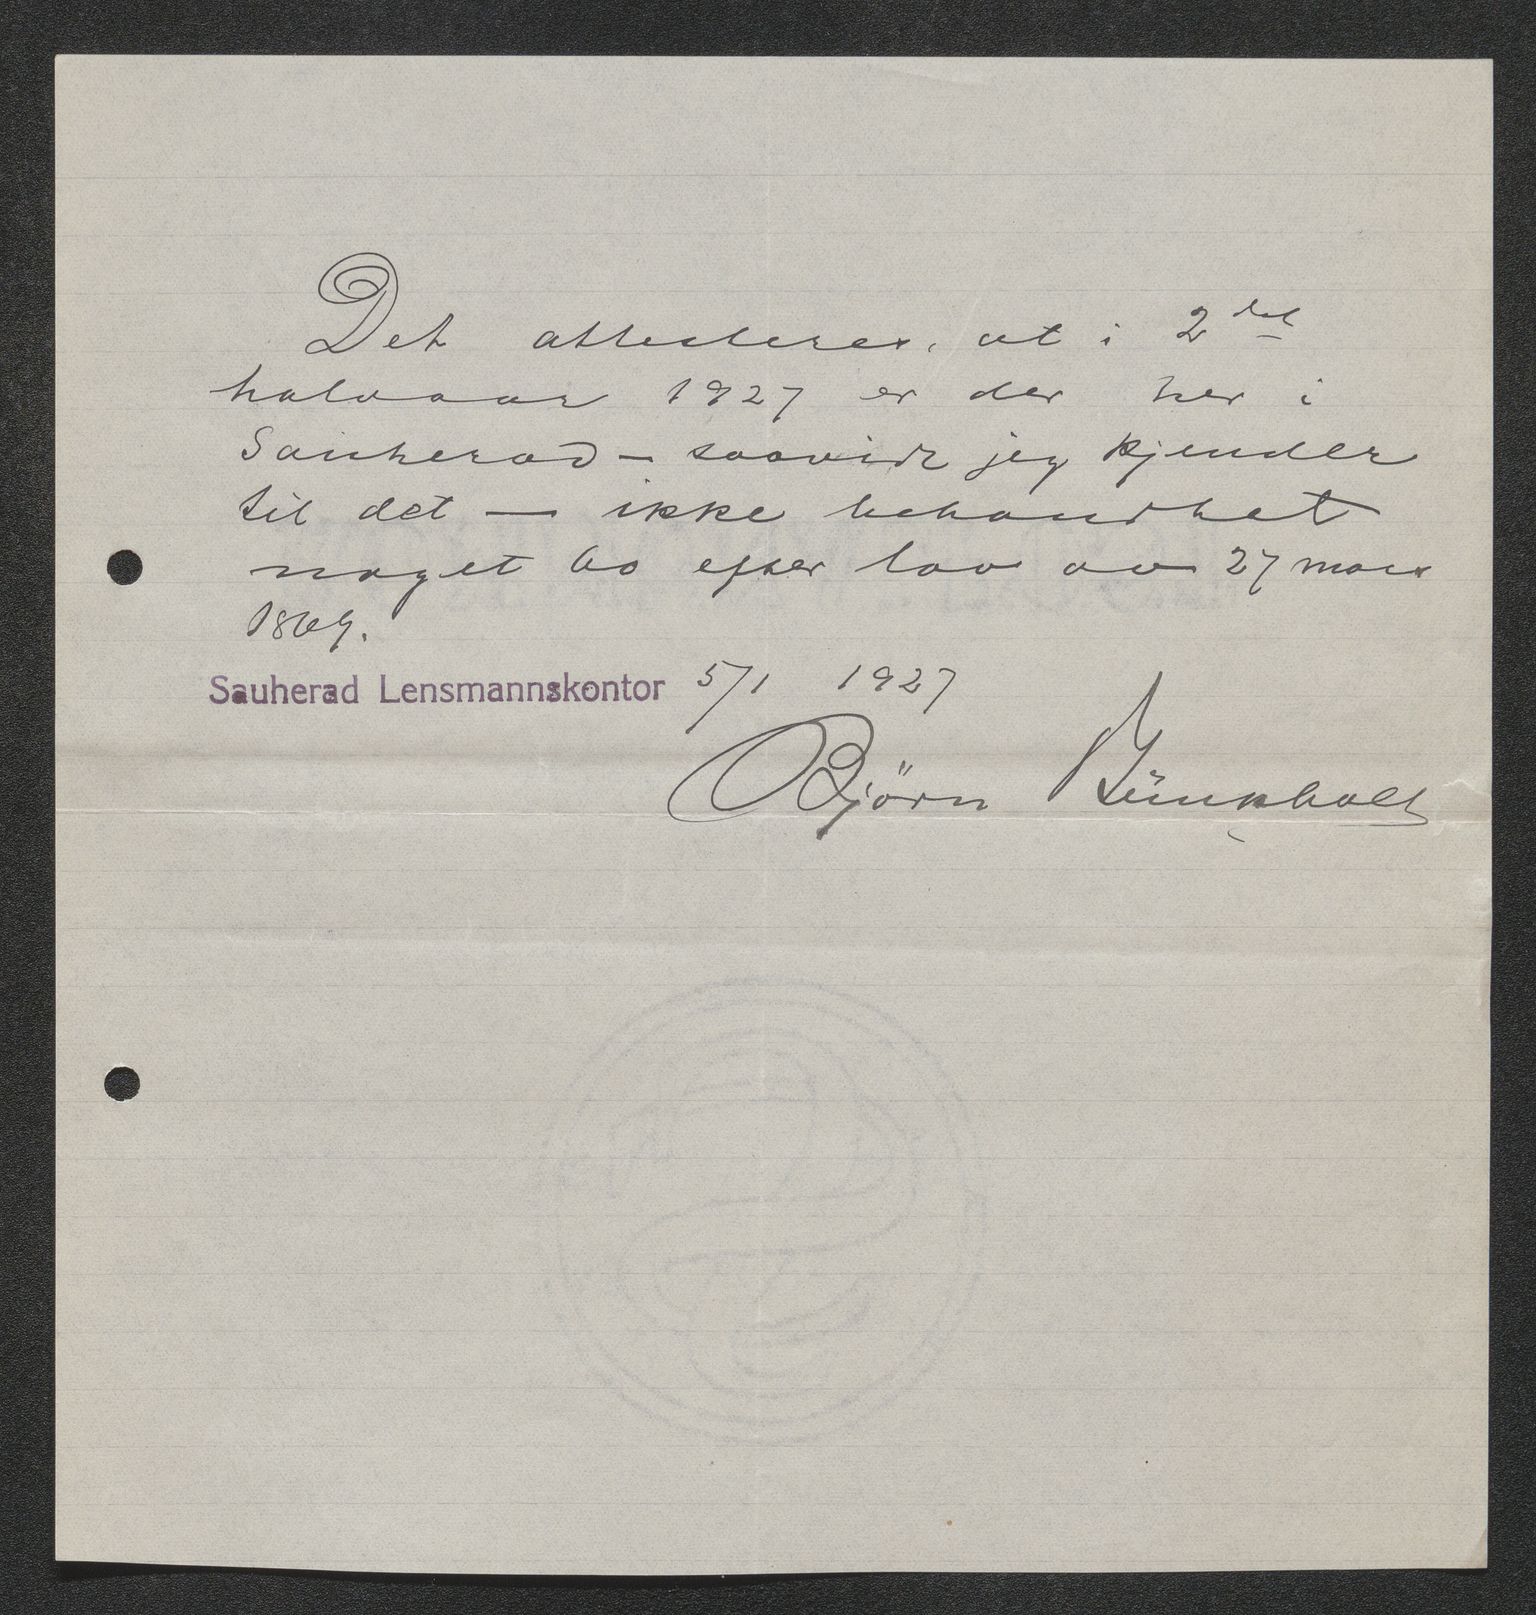 Det attesteres, at i 2det
halvaar 1927 er der her i
Sauherad — saavidt jeg kjender
til det — ikke behandlet
noget bo efter lov av 27 mars
1869.
Sauherad Lensmannskontor 5/1 1927
Björn